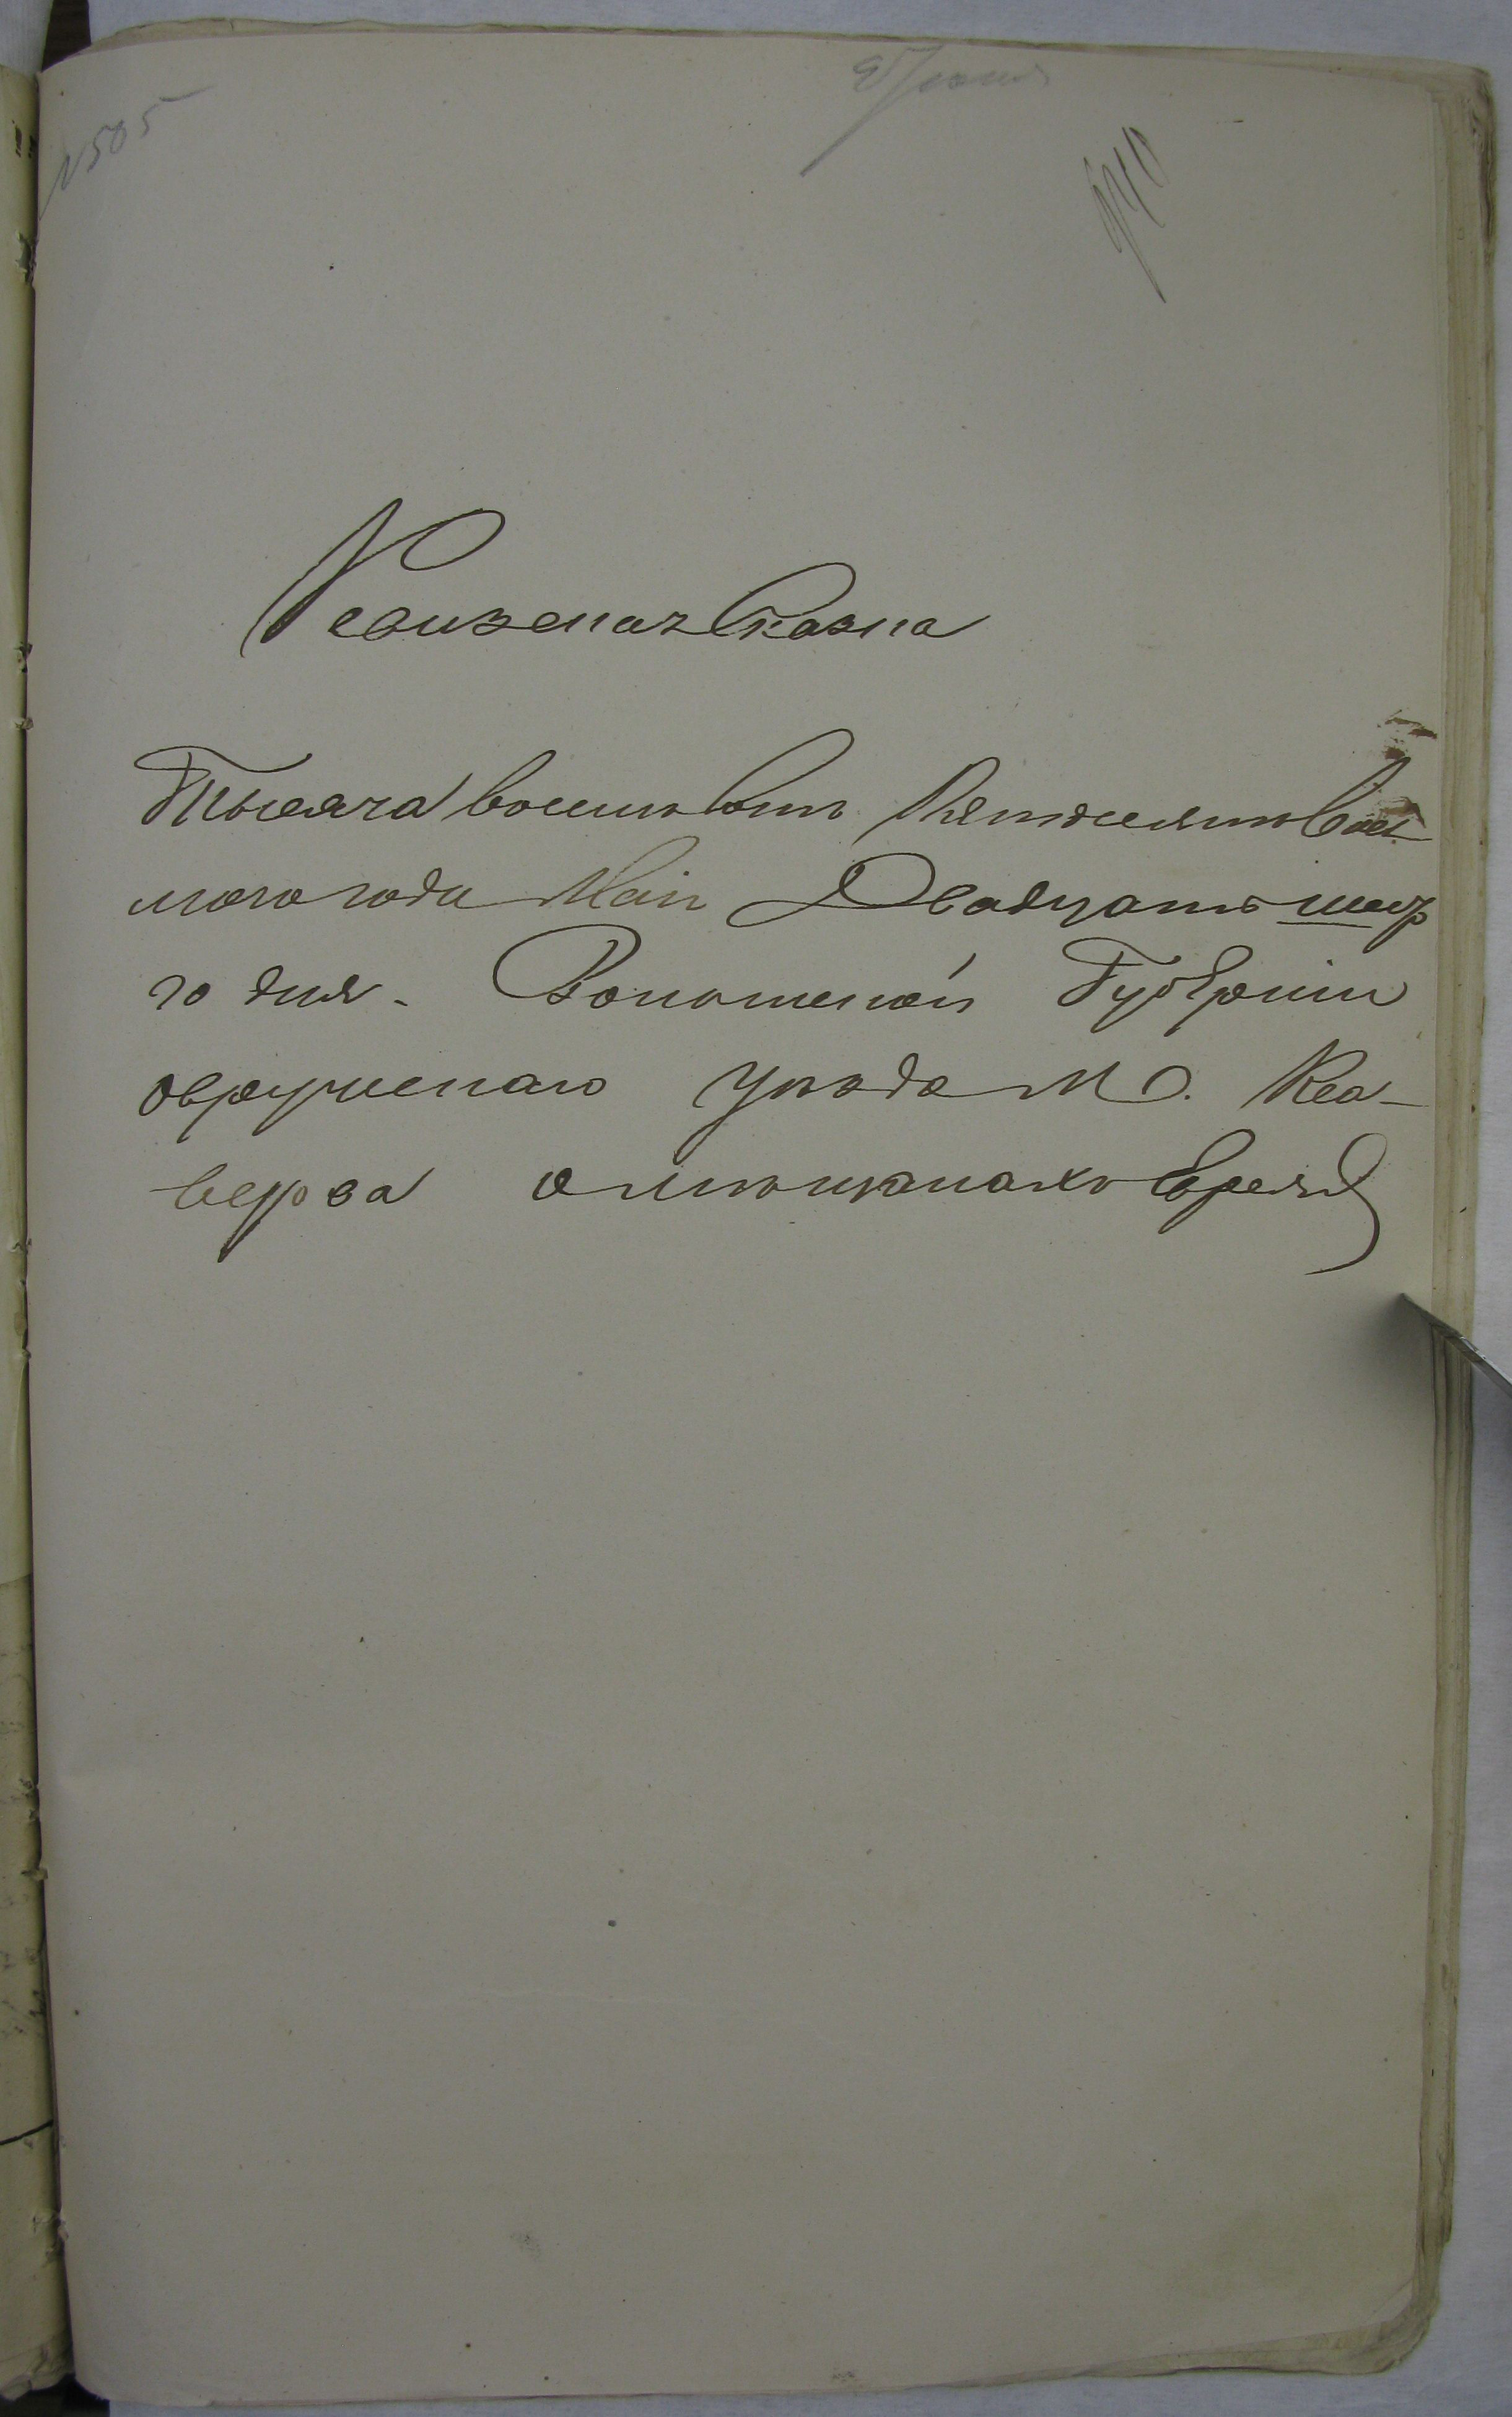 №505
940
Ревизская Сказка
Тысяча восемь сотъ Пятьдесятъ Вось
мого года Маія Двадцать шес
го дня. Волынской Губерніи
овручскаго уѣзда М.
о мѣщанахъ Евреяхъ